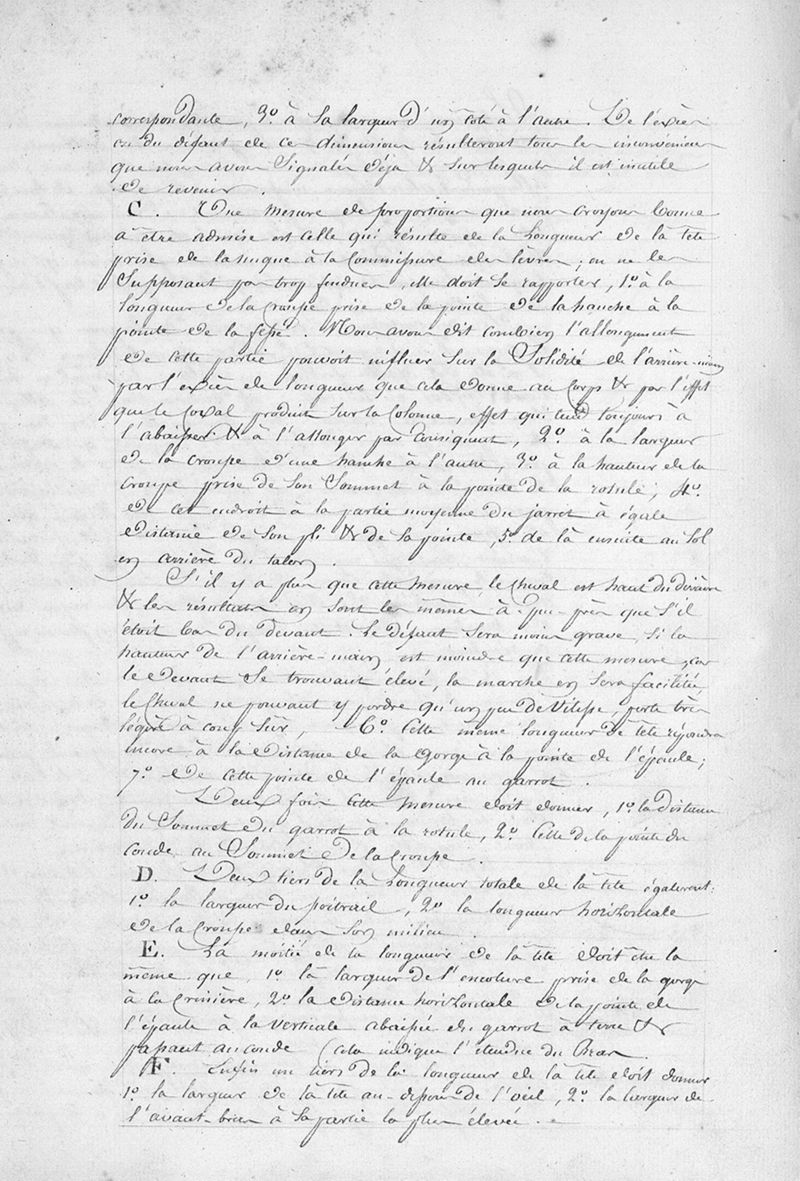 correspondante, 3º à sa largeur d'un coté à l'autre. De l'excès
ou du défaut de ces dimensions résulteront tous les inconvéniens
que nous avons signalés déja & sur lesquels il est inutile
de revenir.
C. Une mesure de proportion que nous croyons bonne
à être admise est celle qui résulte de la longueur de la tête
prise de la nuque à la commissure des lèvres; on ne les
supposant pas trop fendues, elle doit se rapporter, 1º à la
longueur de la croupe prise de la pointe de la hanche à la
pointe de la fesse. Nous avons dit combien l'allongement
de cette partie pouvoit influer sur la solidité de l'arrière-main
par l'excès de longueur que cela donne au corps & par l'effet
que le coxal produit sur la colonne, effet qui tend toujours à
l'abaisser & à l'allonger par conséquent, 2º à la largeur
de la croupe d'une hanche à l'autre, 3º à la hauteur de la
croupe prise de son sommet à la pointe de la rotule, 4º
de cet endroit à la partie moyenne du jarret à égale
distance de son pli & de sa pointe, 5º de là ensuite au sol
en arrière du talon.
S'il y a plus que cette mesure, le cheval est haut du derrière
& les résultats en sont les mêmes à peu-près que s'il
étoit bas du devant. Le défaut sera moins grave, si la
hauteur de l'arrière-main est moindre que cette mesure, car
le devant se trouvant élevé, la marche en sera facilitée,
le cheval ne pouvant y perdre qu'un peu de vitesse, perte très
légère à coup sûr, 6º Cette même longueur de tête répondra
encore à la distance de la gorge à la pointe de l'épaule;
7º de cette pointe de l'épaule au garrot.
Deux fois cette mesure doit donner, 1º la distance
du sommet du garrot à la rotule, 2º celle de la pointe du
coude au sommet de la croupe.
D. Deux tiers de la longueur totale de la tête égaleront:
1º la largeur du poitrail, 2º la longueur horizontale
de la croupe dans son milieu.
E. La moitié de la longueur de la tête doit être la
même que, 1º la largeur de l'encolure prise de la gorge
à la crinière, 2º la distance horizontale de la pointe de
l'épaule à la verticale abaissée du garrot à terre &
passant au coude (cela indique l'étendue du bras.
F. Enfin un tiers de la longueur de la tête doit donner
1º la largeur de la tête au-dessous de l'oeil, 2º la largeur de
l'avant-bras à sa partie la plus élevée.